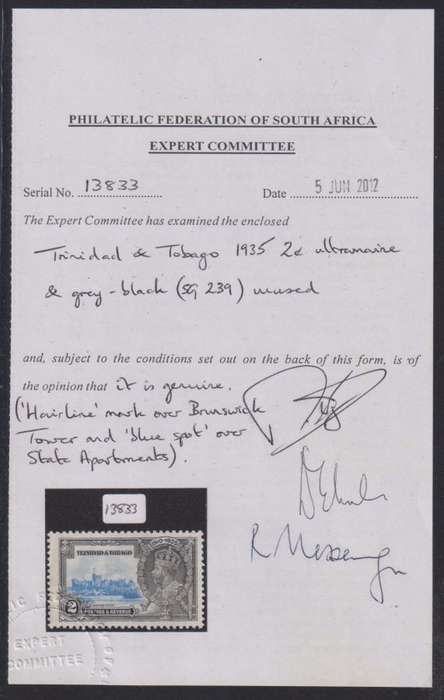 PHILATELIC FEDERATION OF SOUTH AFRICA
EXPERT COMMITTEE
Serial No. 13833 Date 5 JUN 2012
The Expert Committee has examined the enclosed
Trinidad & Tobago 1935 2c ultramarine
& grey-black (SG 239) unused
and, subject to the conditions set out on the back of this form, is of
the opinion that it is genuine.
('Hairline' mark over Brunswick
Tower and 'blue spot' over
State Apartments).
R Messenger
13833
TRINIDAD & TOBAGO
2
POSTAGE & REVENUE
EXPERT
COMMITTEE